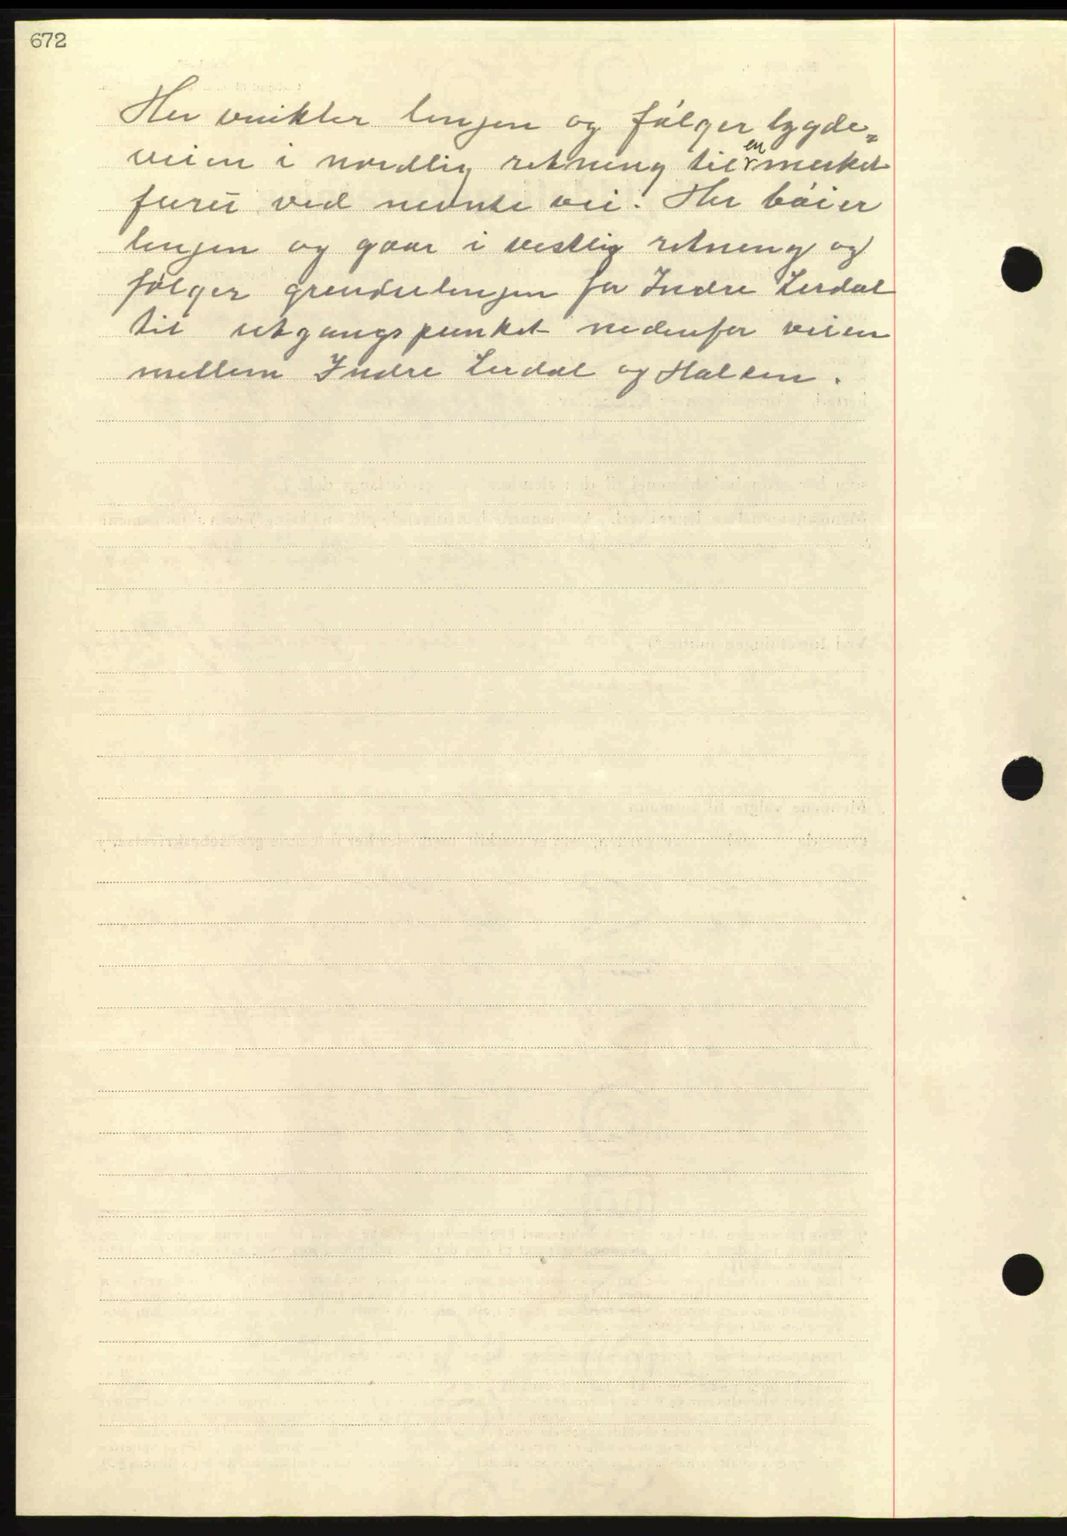 672
Her vinkler linjen og følger bygde=
veien i nordlig retning til en merket
furu ved nevnte vei. Her bøier
linjen og gaar i vestlig retning og
følger grendselinjen for Indre Lerdal
til utgangspunktet nedenfor veien
mellem Indre Lerdal og Halken.